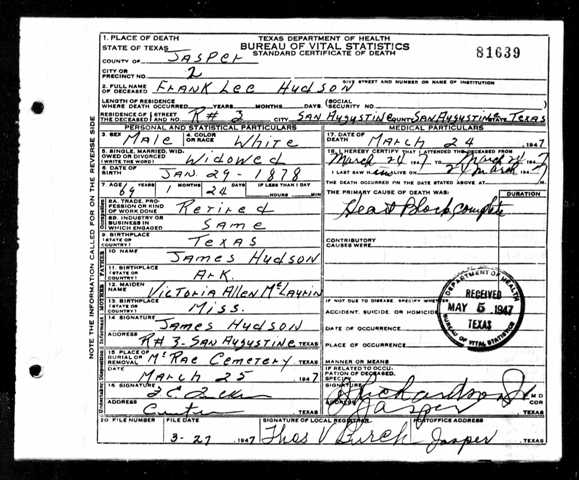 TEXAS DEPARTMENT OF HEALTH
BUREAU OF VITAL STATISTICS
STANDARD CERTIFICATE OF DEATH
81639
1. PLACE OF DEATH
STATE OF TEXAS
COUNTY OF Jasper
CITY OR PRECINCT NO. 2
GIVE STREET AND NUMBER OR NAME OF INSTITUTION
2. FULL NAME OF DECEASED Frank Lee Hudson
LENGTH OF RESIDENCE WHERE DEATH OCCURRED YEARS MONTHS DAYS (SOCIAL SECURITY NO.
RESIDENCE OF THE DECEASED STREET AND NO. R#3 CITY San Augustine COUNTY San Augustine STATE Texas
PERSONAL AND STATISTICAL PARTICULARS
3. SEX Male 4. COLOR OR RACE White
5. SINGLE, MARRIED, WIDOWED OR DIVORCED (WRITE) Widowed
6. DATE OF BIRTH Jan. 29 - 1878
7. AGE YEARS 69 MONTHS 1 DAYS 24 IF LESS THAN 1 DAY HOURS MIN
8A. TRADE, PROFESSION OR KIND OF WORK DONE Retired
8B. INDUSTRY OR BUSINESS IN WHICH ENGAGED Same
9. BIRTHPLACE (STATE OR COUNTRY) Texas
FATHER
10. NAME James Hudson
11. BIRTHPLACE (STATE OR COUNTRY) Ark.
MOTHER
12. MAIDEN NAME Victoria Allen McLaurin
13. BIRTHPLACE (STATE OR COUNTRY) Miss.
14. SIGNATURE James Hudson
ADDRESS R#3. San Augustine TEXAS
15. PLACE OF BURIAL OR REMOVAL McRae Cemetery TEXAS
DATE March 25 1947
16. SIGNATURE
ADDRESS Center TEXAS
MEDICAL PARTICULARS
17. DATE OF DEATH March 24 1947
18. I HEREBY CERTIFY THAT I ATTENDED THE DECEASED FROM
March 24 1947 TO March 24 1947
I LAST SAW him ALIVE ON 24 March 1947
THE DEATH OCCURRED ON THE DATE STATED ABOVE AT M
THE PRIMARY CAUSE OF DEATH WAS: DURATION
Heart Block, Complete
CONTRIBUTORY CAUSES WERE
IF NOT DUE TO DISEASE, SPECIFY WHETHER
ACCIDENT, SUICIDE OR HOMICIDE
DATE OF OCCURRENCE
PLACE OF OCCURRENCE
MANNER OR MEANS
IF RELATED TO OCCUPATION OF DECEASED, SPECIFY
SIGNATURE Richardson Jr M D
ADDRESS Jasper TEXAS
DEPARTMENT OF HEALTH
RECEIVED
MAY 5 1947
TEXAS
BUREAU OF VITAL STATISTICS
20 FILE NUMBER FILE DATE SIGNATURE OF LOCAL REGISTRAR POSTOFFICE ADDRESS
3-27 1947 Thos V Burch Jasper TEXAS
NOTE THE INFORMATION CALLED FOR ON THE REVERSE SIDE